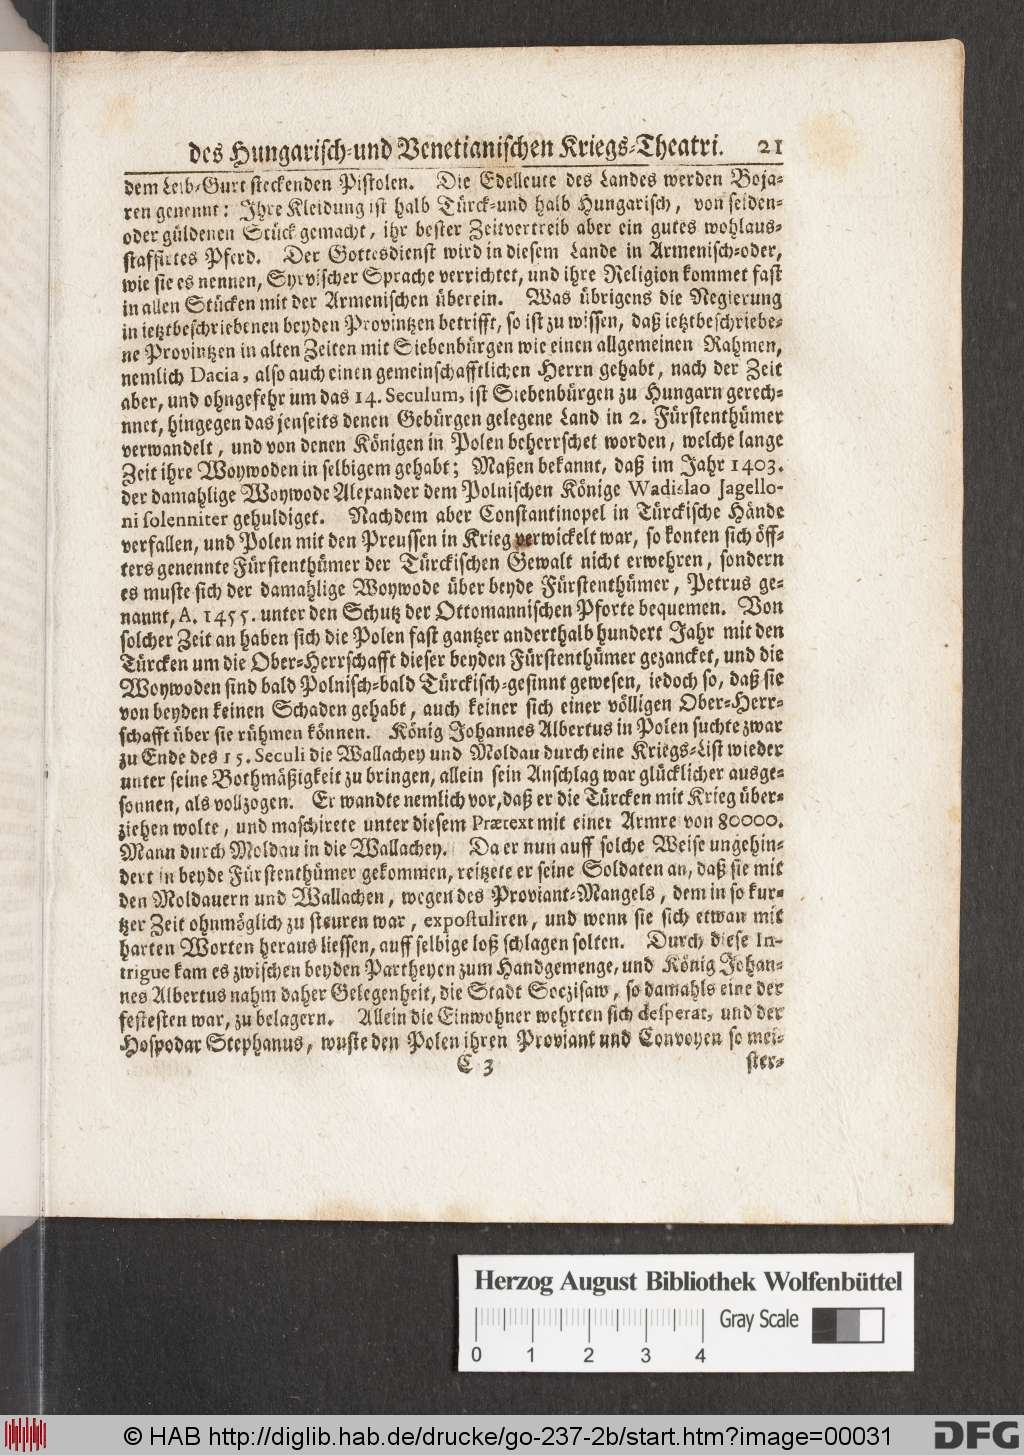 des Hungarisch-und Venetianischen Kriegs-Theatri. 21
dem Leib-Gurt steckenden Pistolen. Die Edelleute des Landes werden Boja-
ren genennt: Ihre Kleidung ist halb Türck-und halb Hungarisch, von seiden-
oder güldenen Stück gemacht, ihr bester Zeitvertreib aber ein gutes wohlaus-
staffirtes Pferd. Der Gottesdienst wird in diesem Lande in Armenisch-oder,
wie sie es nennen, Syrvischer Sprache verrichtet, und ihre Religion kommet fast
in allen Stücken mit der Armenischen überein. Was übrigens die Regierung
in ietztbeschriebenen beyden Provintzen betrifft, so ist zu wissen, daß ietztbeschriebe-
ne Provintzen in alten Zeiten mit Siebenbürgen wie einen allgemeinen Nahmen,
nemlich Dacia, also auch einen gemeinschafftlichen Herrn gehabt, nach der Zeit
aber, und ohngefehr um das 14. Seculum, ist Siebenbürgen zu Hungarn gerech-
nnet, hingegen das jenseits denen Gebürgen gelegene Land in 2. Fürstenthümer
verwandelt, und von denen Königen in Polen beherrschet worden, welche lange
Zeit ihre Woywoden in selbigem gehabt; Maßen bekannt, daß im Jahr 1403.
der damahlige Woywode Alexander dem Polnischen Könige Wadislao Jagello-
ni solenniter gehuldiget. Nachdem aber Constantinopel in Türckische Hände
verfallen, und Polen mit den Preussen in Krieg verwickelt war, so konten sich öff-
ters genennte Fürstenthümer der Türckischen Gewalt nicht erwehren, sondern
es muste sich der damahlige Woywode über beyde Fürstenthümer, Petrus ge-
nannt, A. 1455. unter den Schutz der Ottomannischen Pforte bequemen. Von
solcher Zeit an haben sich die Polen fast gantzer anderthalb hundert Jahr mit den
Türcken um die Ober-Herrschafft dieser beyden Fürstenthümer gezancket, und die
Woywoden sind bald Polnisch-bald Türckisch-gesinnt gewesen, iedoch so, daß sie
von beyden keinen Schaden gehabt, auch keiner sich einer völligen Ober-Herr-
schafft über sie rühmen können. König Johannes Albertus in Polen suchte zwar
zu Ende des 15. Seculi die Wallachey und Moldau durch eine Kriegs-List wieder
unter seine Bothmäßigkeit zu bringen, allein sein Anschlag war glücklicher ausge-
sonnen, als vollzogen. Er wandte nemlich vor, daß er die Türcken mit Krieg über-
ziehen wolte, und maschirete unter diesem Prætext mit einer Armee von 80000.
Mann durch Moldau in die Wallachey. Da er nun auff solche Weise ungehin-
dert in beyde Fürstenthümer gekommen, reitzete er seine Soldaten an, daß sie mit
den Moldauern und Wallachen, wegen des Proviant-Mangels, dem in so kur-
tzer Zeit ohnmöglich zu steuren war, expostuliren, und wenn sie sich etwan mit
harten Worten heraus liessen, auff selbige loß schlagen solten. Durch diese In-
trigue kam es zwischen beyden Partheyen zum Handgemenge, und König Johan-
nes Albertus nahm daher Gelegenheit, die Stadt Soczisaw, so damahls eine der
festesten war, zu belagern. Allein die Einwohner wehrten sich desperat, und der
Hospodar Stephanus, wuste den Polen ihren Proviant und Convoyen so mei-
C 3 ster-
Herzog August Bibliothek Wolfenbüttel
Gray Scale
0 1 2 3 4
© HAB http://diglib.hab.de/drucke/go-237-2b/start.htm?image=00031
DFG